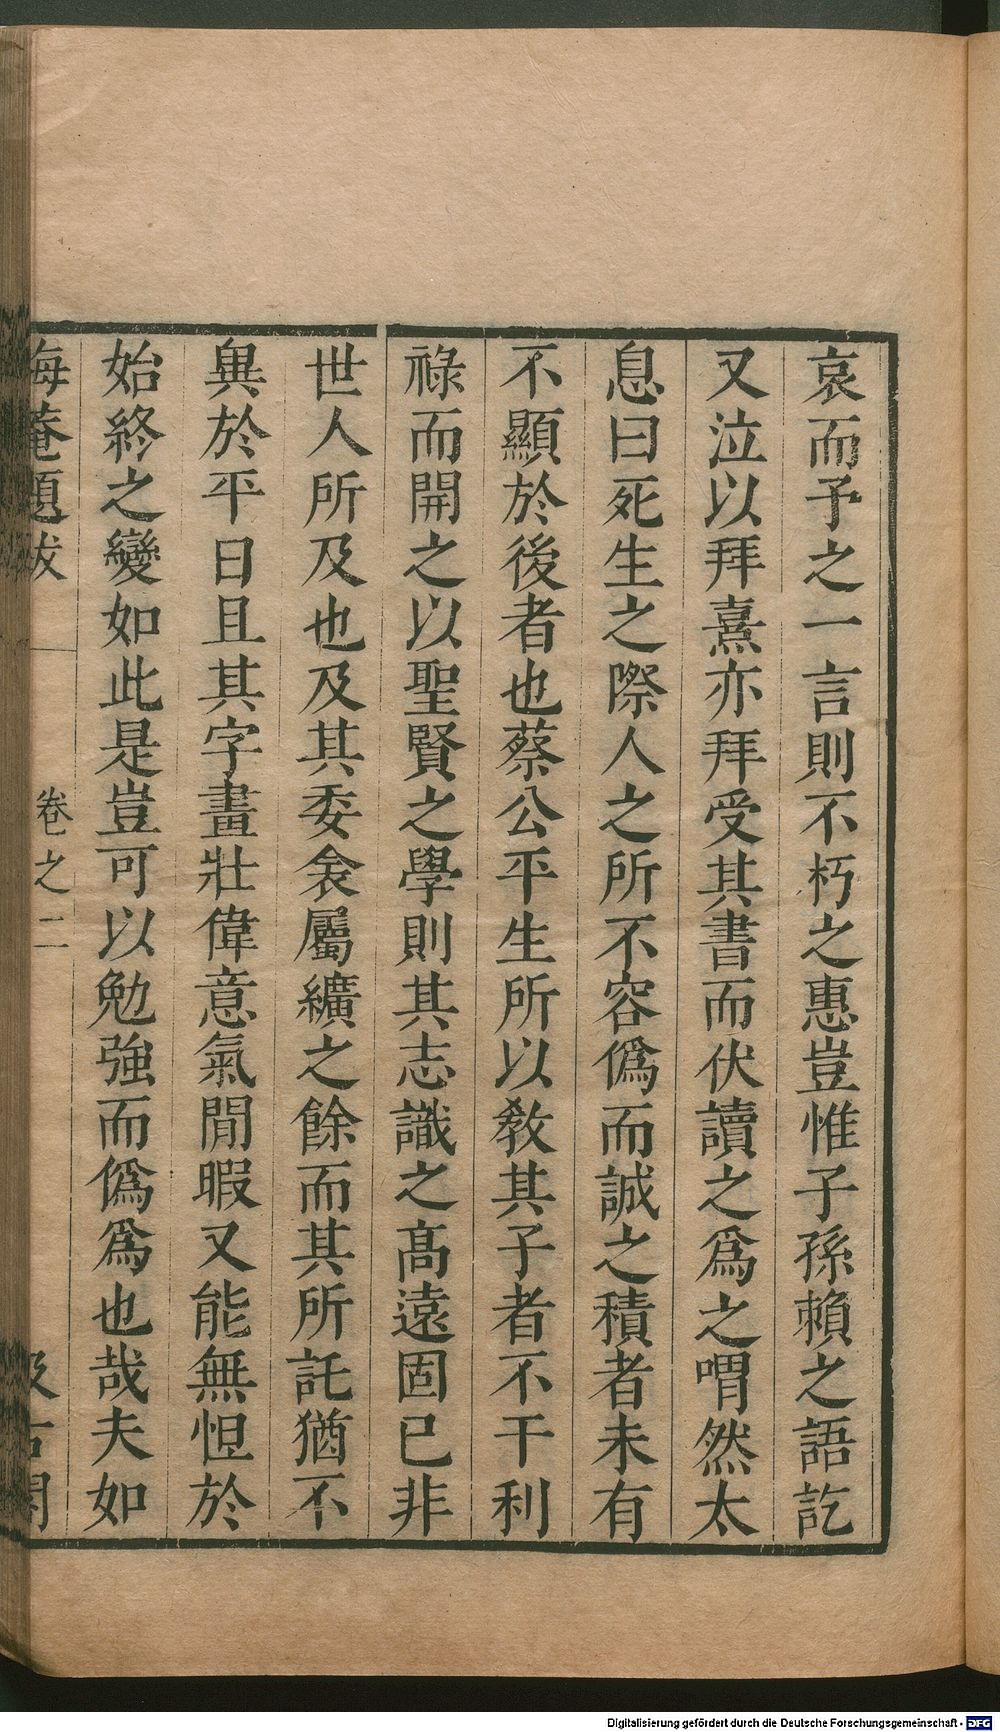 哀而予之一言則不朽之惠豈惟子孫賴之語訖
又泣以拜熹亦拜受其書而伏讀之爲之喟然太
息曰死生之際人之所不容僞而誠之積者未有
不顯於後者也蔡公平生所以敎其子者不干利
祿而開之以聖賢之學則其志識之高遠固已非
世人所及也及其委衾屬纊之餘而其所託猶不
異於平日且其字畫壯偉意氣閒暇又能無怛於
始終之變如此是豈可以勉強而僞爲也哉夫如
晦菴題跋 卷之二 汲古閣
Digitalisierung gefördert durch die Deutsche Forschungsgemeinschaft - DFG